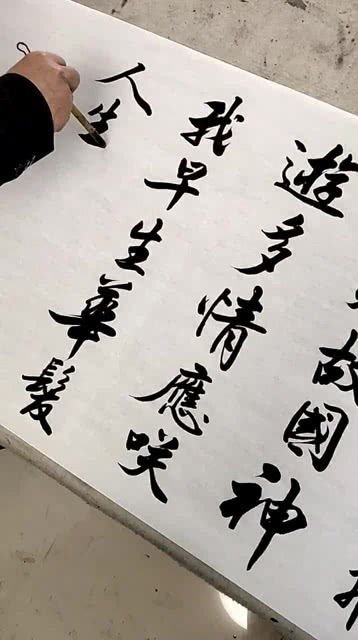 故國神
遊多情應咲
我早生華髮
人生